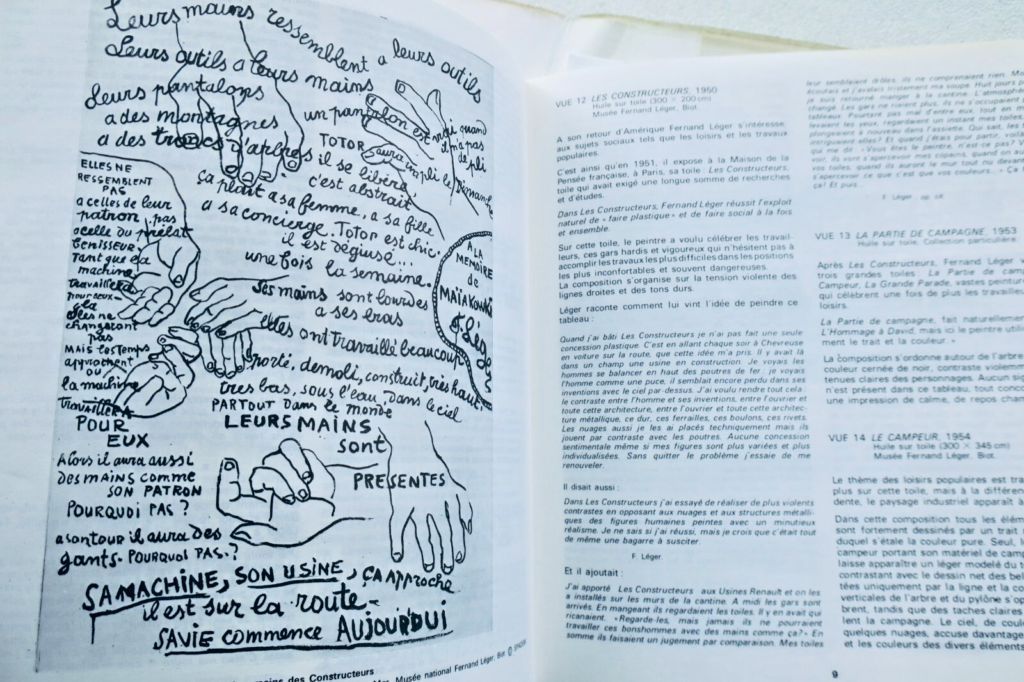 Leurs mains ressemblent a leurs outils
Leurs outils a leurs mains
Leurs pantalons
a des montagnes
a des troncs d'arbres
un pantalon est vrai quand
il n'a pas
de pli
TOTOR aura un pli le Dimanche
il se libéra,
c'est abstrait
Ça plait a sa femme, a sa fille
a sa concierge. TOTOR est chic.
il est déguisé...
une fois la semaine.
ELLES NE
RESSEMBLENT
PAS
a celles de leur
patron, pas
a celle du prélat
Benisseur
Tant que la
machine
travaillera
pour eux
elles ne
changeront
pas
MAIS les Temps
approchent
où
la machine
Travaillera
POUR
EUX
A LA
MEMOIRE
de
MAÏAKOWSKI
F. Léger
Ses mains sont lourdes
a ses bras
Elles ont travaillé beaucoup
porté, demoli, construit, très haut
très bas, sous l'eau, dans le ciel
PARTOUT Dans le monde
LEURS MAINS
sont
PRESENTES
Alors il aura aussi
DES MAINS COMME
SON PATRON
POURQUOI PAS ?
a son tour il aura des
gants. POURQUOI PAS.?
SA MACHINE, SON USINE, ÇA APPROCHE
il est sur la route -
SA VIE commence AUJOURDUI
mains des Constructeurs
Musée national Fernand Léger, Biot © SPADEM
VUE 12 LES CONSTRUCTEURS, 1950
Huile sur toile (300 × 200 cm)
Musée Fernand Léger, Biot.
A son retour d'Amérique Fernand Léger s'intéresse,
aux sujets sociaux tels que les loisirs et les travaux
populaires.
C'est ainsi qu'en 1951, il expose à la Maison de la
Pensée française, à Paris, sa toile : Les Constructeurs,
toile qui avait exigé une longue somme de recherches
et d'études.
Dans Les Constructeurs, Fernand Léger réussit l'exploit
naturel de « faire plastique » et de faire social à la fois
et ensemble.
Sur cette toile, le peintre a voulu célébrer les travail-
leurs, ces gars hardis et vigoureux qui n'hésitent pas à
accomplir les travaux les plus difficiles dans les positions
les plus inconfortables et souvent dangereuses.
La composition s'organise sur la tension violente des
lignes droites et des tons durs.
Léger raconte comment lui vint l'idée de peindre ce
tableau :
Quand j'ai bâti Les Constructeurs je n'ai pas fait une seule
concession plastique. C'est en allant chaque soir à Chevreuse
en voiture sur la route, que cette idée m'a pris. Il y avait là
dans un champ une usine en construction. Je voyais les
hommes se balancer en haut des poutres de fer ; je voyais
l'homme comme une puce, il semblait encore perdu dans ses
inventions avec le ciel par-dessus. J'ai voulu rendre tout cela :
le contraste entre l'homme et ses inventions, entre l'ouvrier et
toute cette architecture, entre l'ouvrier et toute cette architec-
ture métallique, ce dur, ces ferrailles, ces boulons, ces rivets.
Les nuages aussi je les ai placés techniquement mais ils
jouent par contraste avec les poutres. Aucune concession
sentimentale même si mes figures sont plus variées et plus
individualisées. Sans quitter le problème j'essaie de me
renouveler.
Il disait aussi :
Dans Les Constructeurs j'ai essayé de réaliser de plus violents
contrastes en opposant aux nuages et aux structures métalli-
ques des figures humaines peintes avec un minutieux
réalisme. Je ne sais si j'ai réussi, mais je crois que c'était tout
de même une bagarre à susciter.
F. Léger.
Et il ajoutait :
J'ai apporté Les Constructeurs aux Usines Renault et on les
a installés sur les murs de la cantine. A midi les gars sont
arrivés. En mangeant ils regardaient les toiles. Il y en avait qui
ricanaient. «Regarde-les, mais jamais ils ne pourraient
travailler ces bonshommes avec des mains comme ça!» En
somme ils faisaient un jugement par comparaison. Mes toiles
leur semblaient drôles, ils ne comprenaient rien. Moi
écoutais et j'avalais tristement ma soupe. Huit jours
je suis retourné manger à la cantine. L'atmosphère
changé. Les gars ne riaient plus, ils ne s'occupaient
tableaux. Pourtant pas mal d'entre eux, tout en
levaient les yeux, regardaient un instant mes toiles,
plongeaient à nouveau dans l'assiette. Qui sait, les
intriguaient elles? Et quand j'étais
qui me dit : «Vous êtes le peintre, n'est-ce pas? V
voir, ils vont s'apercevoir mes copains, quand
vos toiles, quand ils auront le mur tout nu devant
s'apercevoir ce que c'est que vos couleurs... » Ça
ça! Et puis
F. Léger, op. cit.
VUE 13 LA PARTIE DE CAMPAGNE, 1953
Huile sur toile. Collection particulière.
Après Les Constructeurs, Fernand Léger
trois grandes toiles : La Partie de cam
Campeur, La Grande Parade, vastes peintur
qui célèbrent une fois de plus les travailleu
loisirs.
La Partie de campagne, fait naturellement
L'Hommage à David, mais ici le peintre utili
ment le trait et la couleur. »
La composition s'ordonne autour de l'arbre
couleur cernée de noir, contraste violemme
tenues claires des personnages. Aucun
n'est présent dans ce tableau, tout conco
une impression de calme, de repos cham
VUE 14 LE CAMPEUR, 1954
Huile sur toile (300 × 345 cm)
Musée Fernand Léger, Biot.
Le thème des loisirs populaires est tra
plus sur cette toile, mais à la différen
dente, le paysage industriel apparaît à
Dans cette composition tous les élém
sont fortement dessinés par un trait
duquel s'étale la couleur pure. Seul, l
campeur portant son matériel de camp
laisse apparaître un léger modelé du t
contrastant avec le dessin net des bel
tées uniquement par la ligne et la co
verticales de l'arbre et du pylône s'op
brent, tandis que des taches claires
lent la campagne. Le ciel, de coul
quelques nuages, accuse davantage
et les couleurs des divers éléments
9